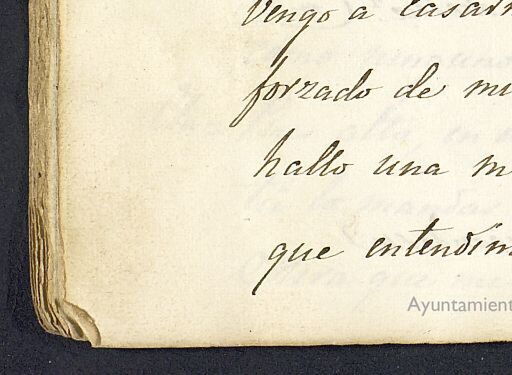 Vengo a casar
forzado de mi
hallo una m
que entendim
Ayuntamient